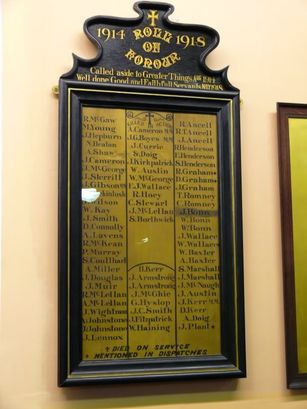 1914 ROLL 1918
OF
HONOUR
Called aside to Greater Things, Aug 1914
Well done Good and Faithful Servants
R. McGaw
W. Young
J. Hepburn
N. Deaton
A. Shaw
J. Cameron
J. McGeorge
J. Sterriff
J. Gibson
W. Kay
J. Smith
D. Connolly
A. Lavens
R. McKean
P. Murray
S. Coulthard
A. Miller
J. Douglas
J. Muir
R. McLellan
A. McLellan
J. Wightman
A. Johnstone
J. Johnstone
J. Lennox
KILLED IN ACTION
J. Cameron M.M.
J. G. Boyes M.M.
J. Currie
S. Doig
J. Kirkpatrick
W. Austin
W. McGeorge
E. J. Wallace
R. Hoey
C. Stewart
J. McLellan
S. Borthwick
D. Kerr
J. Armstrong
J. Armstrong
J. McGhie
G. Hyslop
J. C. Smith
J. Fitzpatrick
W. Haining
R. Ancell
R. T. Ancell
J. Ancell
R. Henderson
E. Henderson
S. Henderson
R. Graham
D. Graham
J. Graham
T. Romney
C. Romney
J. Bonn
W. Bonn
W. Bonn
J. Wallace
W. Wallace
W. Baxter
A. Baxter
S. Marshall
J. Marshall
J. McNaught
J. Austin
J. Kerr M.M.
D. Kerr
A. Doig
J. Plant
DIED ON SERVICE
MENTIONED IN DISPATCHES